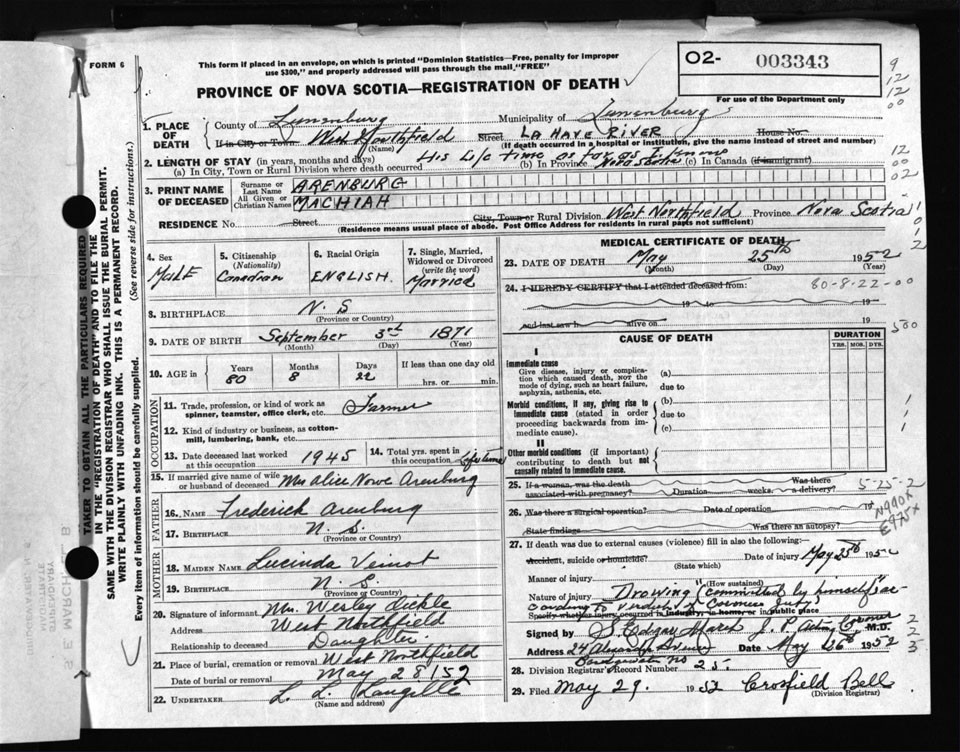 FORM 6
This form if placed in an envelope, on which is printed "Dominion Statistics—Free, penalty for improper
use $300," and properly addressed will pass through the mail, "FREE"
PROVINCE OF NOVA SCOTIA—REGISTRATION OF DEATH
O2- 003343
For use of the Department only
9
12
12
00
12
00
02
1. PLACE OF DEATH
County of Lunenburg Municipality of Lunenburg
If in City or Town West Northfield Street LA HAVE RIVER House No.
(Name) (If death occurred in a hospital or institution, give the name instead of street and number)
2. LENGTH OF STAY (in years, months and days) His life time as far as I know
(a) In City, Town or Rural Division where death occurred (b) In Province Nova Scotia (c) In Canada (if immigrant)
3. PRINT NAME OF DECEASED
Surname or Last Name ARENBURG
All Given or Christian Names MACHIAH
RESIDENCE No. Street City, Town or Rural Division West Northfield Province Nova Scotia
(Residence means usual place of abode. Post Office Address for residents in rural parts not sufficient)
4. Sex
Male
5. Citizenship
(Nationality)
Canadian
6. Racial Origin
ENGLISH.
7. Single, Married,
Widowed or Divorced
(write the word)
Married
8. BIRTHPLACE N. S
(Province or Country)
9. DATE OF BIRTH September 3rd 1871
(Month) (Day) (Year)
10. AGE in
Years Months Days If less than one day old
80 8 22 hrs. or min.
OCCUPATION
11. Trade, profession, or kind of work as
spinner, teamster, office clerk, etc. Farmer
12. Kind of industry or business, as cotton-
mill, lumbering, bank, etc.
13. Date deceased last worked
at this occupation 1945
14. Total yrs. spent in
this occupation Lifetime
15. If married give name of wife
or husband of deceased Mrs Alice Nowe Arenburg
FATHER
16. NAME Frederick Arenburg
17. BIRTHPLACE N. S.
(Province or Country)
MOTHER
18. MAIDEN NAME Lucinda Veinot
19. BIRTHPLACE N. S
(Province or Country)
20. Signature of informant Mrs. Wesley
Address West Northfield
Relationship to deceased Daughter
21. Place of burial, cremation or removal West Northfield
Date of burial or removal May 28/52
22. UNDERTAKER L. L. Langille
(Name and address)
MEDICAL CERTIFICATE OF DEATH
23. DATE OF DEATH May 25th 1952
(Month) (Day) (Year)
80-8-22-00
24. I HEREBY CERTIFY that I attended deceased from:
19 to 19
and last saw h alive on 19
500
CAUSE OF DEATH
DURATION
YRS. MOS. DYS.
I
Immediate cause
Give disease, injury or complica-
tion which caused death, NOT the
mode of dying, such as heart failure,
asphyxia, asthenia, etc.
(a)
due to
Morbid conditions, if any, giving rise to
immediate cause (stated in order
proceeding backwards from im-
mediate cause).
(b)
due to
(c)
II
Other morbid conditions (if important)
contributing to death but not
causally related to immediate cause.
25. If a woman, was the death
associated with pregnancy? Duration weeks. Was there
a delivery?
5-25-2
26. Was there a surgical operation? Date of operation 19
State findings Was there an autopsy?
N990X
E975X
27. If death was due to external causes (violence) fill in also the following:
Accident, suicide or homicide? Date of injury May 25th 1952
(State which)
Manner of injury
(How sustained)
Nature of injury Drowing "(committed by himself" ac
cording to verdict of Coroners Jury)
Specify whether injury occurred in industry, in home, or in public place
Signed by S. Edgar March J. P. Acting Coroner M.D.
Address 24 Alexandra Avenue Date May 26th 1952
Bridgewater NS
28. Division Registrar's Record Number 25-
29. Filed May 29. 1952 Crossfield Bell
(Division Registrar)
TAKEN TO OBTAIN ALL THE PARTICULARS REQUIRED
IN THE "REGISTRATION OF DEATH" AND TO FILE THE
SAME WITH THE DIVISION REGISTRAR WHO SHALL ISSUE THE BURIAL PERMIT.
WRITE PLAINLY WITH UNFADING INK. THIS IS A PERMANENT RECORD.
Every item of information should be carefully supplied. (See reverse side for instructions.)